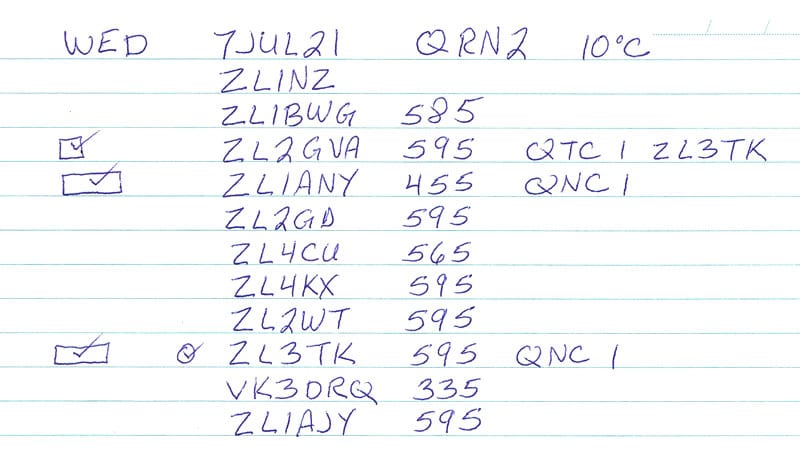 WED 7JUL21 QRN2 10°C
ZL1NZ
ZL1BWG 585
ZL2GVA 595 QTC 1 ZL3TK
ZL1ANY 455 QNC 1
ZL2GD 595
ZL4CU 565
ZL4KX 595
ZL2WT 595
ZL3TK 595 QNC 1
VK3DRQ 335
ZL1AJY 595